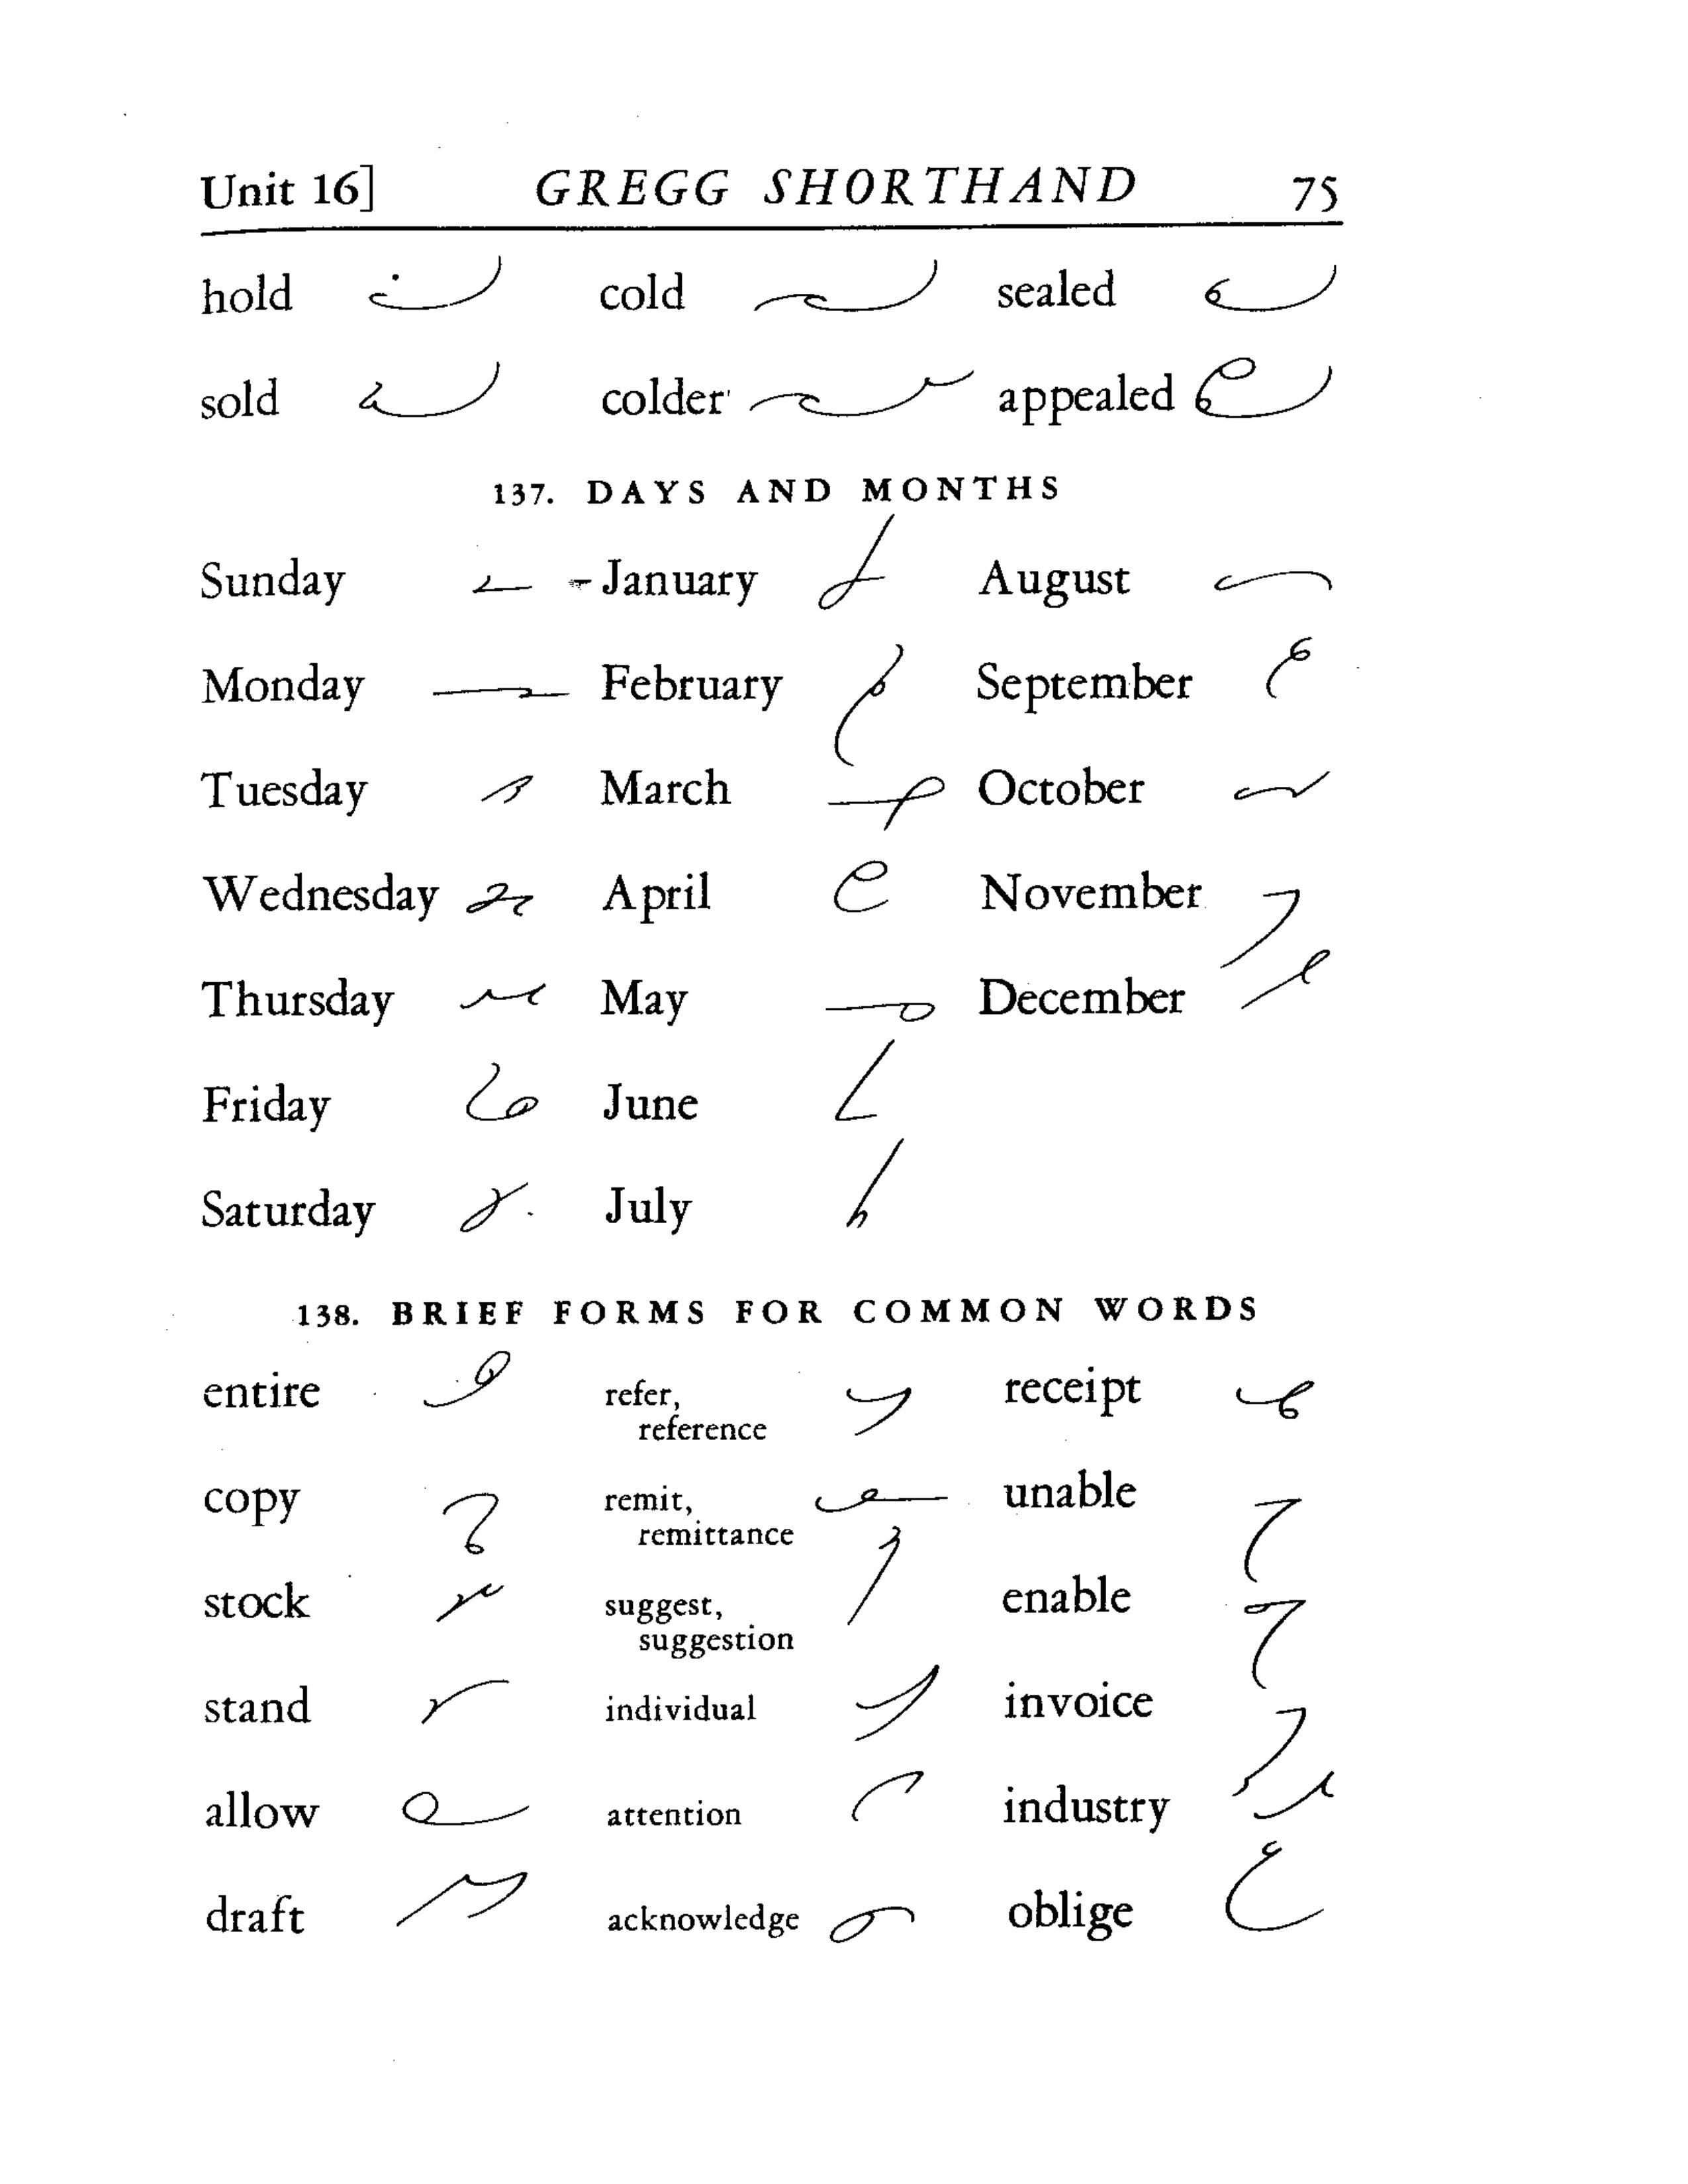 Unit 16] GREGG SHORTHAND 75
hold cold sealed
sold colder appealed
137. DAYS AND MONTHS
Sunday January August
Monday February September
Tuesday March October
Wednesday April November
Thursday May December
Friday June
Saturday July
138. BRIEF FORMS FOR COMMON WORDS
entire refer, receipt
reference
copy remit, unable
remittance
stock suggest, enable
suggestion
stand individual invoice
allow attention industry
draft acknowledge oblige